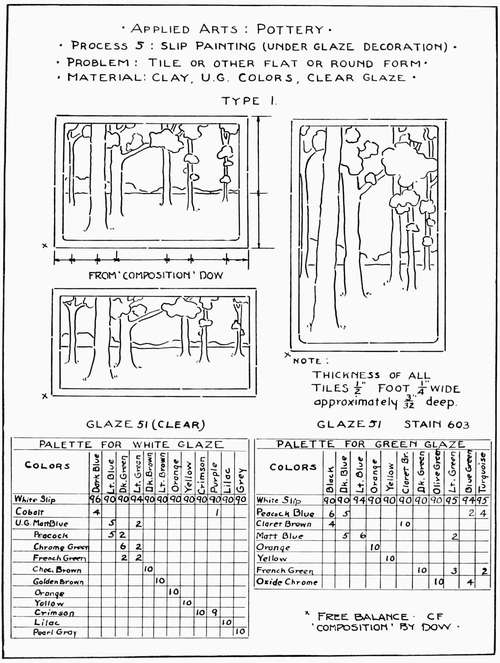 · APPLIED ARTS : POTTERY ·
· PROCESS 5 : SLIP PAINTING (UNDER GLAZE DECORATION) ·
· PROBLEM : TILE OR OTHER FLAT OR ROUND FORM ·
· MATERIAL: CLAY, U.G. COLORS, CLEAR GLAZE ·
TYPE 1.
FROM 'COMPOSITION' DOW
NOTE:
THICKNESS OF ALL
TILES 1/2" FOOT 1/4" WIDE
approximately 3/32" deep.
GLAZE 51 (CLEAR)
PALETTE FOR WHITE GLAZE
COLORS Dark Blue Lt. Blue Dk. Green Lt. Green Dk. Brown Lt. Brown Orange Yellow Crimson Purple Lilac Grey
White Slip 96 90 90 94 90 90 90 90 90 90 90 90
Cobalt 4 1
U.G. Matt Blue 5 2
Peacock 5 2
Chrome Green 6 2
French Green 2 2
Choc. Brown 10
Golden Brown 10
Orange 10
Yellow 10
Crimson 10 9
Lilac 10
Pearl Gray 10
GLAZE 51 STAIN 603
PALETTE FOR GREEN GLAZE
COLORS Black Dk. Blue Lt. Blue Orange Yellow Claret Br. Dk. Green Olive Green Lt. Green Blue Green Turquoise
White Slip 90 90 94 90 90 90 90 90 95 94 95
Peacock Blue 6 5 2 4
Claret Brown 4 10
Matt Blue 5 6 2
Orange 10
Yellow 10
French Green 10 3 2
Oxide Chrome 10 4
× FREE BALANCE · CF
'COMPOSITION' BY DOW ·